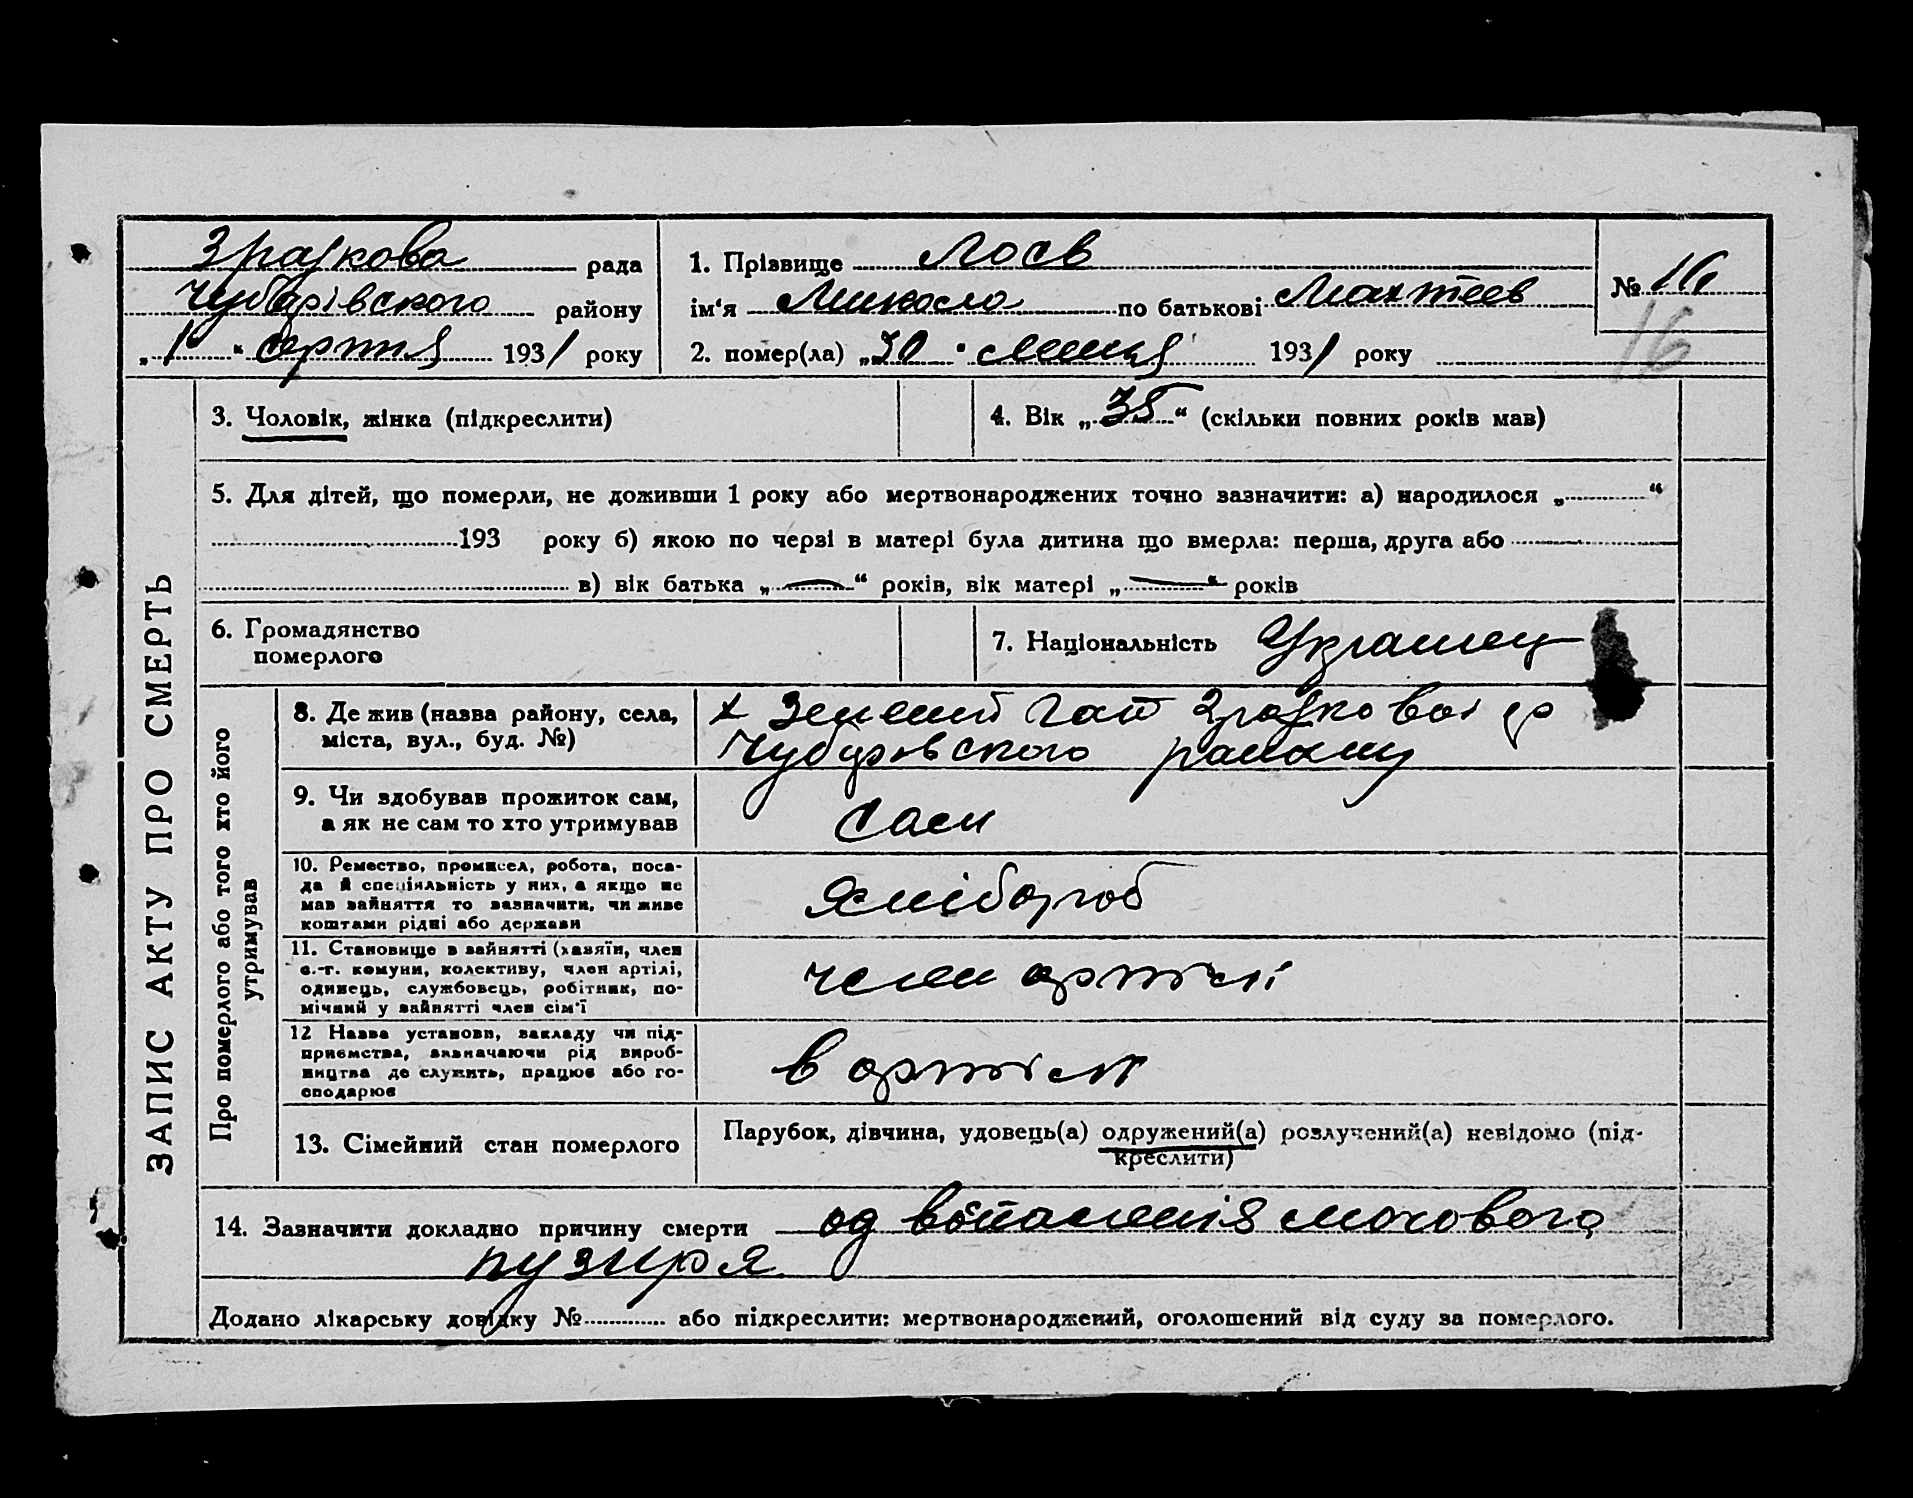 Зразкова рада
Чубарівського району
„ 1 “ серпня 1931 року
1. Прізвище Лосв
ім‘я Микола по батькові Махтеев
2. помер(ла) „30 “ липня 1931 року
№ 16
16
ЗАПИС АКТУ ПРО СМЕРТЬ
3. Чоловік, жінка (підкреслити)
4. Вік „ 35 “ (скільки повних років мав)
5. Для дітей, що померли, не доживши 1 року або мертвонароджених точно зазначити: а) народилося „ “
193 року б) якою по черзі в матері була дитина що вмерла: перша, друга або
в) вік батька „ — “ років, вік матері „ — “ років
6. Громадянство
померлого
7. Національність Українец
Про померлого або того хто його
утримував
8. Де жив (назва району, села,
міста, вул., буд. №)
х Зелений Гай Зразковоі с/р
Чубарівского району
9. Чи здобував прожиток сам,
а як не сам то хто утримував
Сам
10. Ремество, промисел, робота, поса-
да й спеціяльність у них, а якщо не
мав зайняття то зазначити, чи живе
коштами рідні або держави
хлібороб
11. Становище в зайнятті (хазяїн, член
с.-г. комуни, колективу, член артілі,
одинець, службовець, робітник, по-
мічний у зайнятті член сім‘ї
член артілі
12 Назва установи, закладу чи під-
приємства, зазначаючи рід вироб-
ництва де служить, працює або го-
сподарює
в артілі
13. Сімейний стан померлого
Парубок, дівчина, удовець(а) одружений(а) розлучений(а) невідомо (під-
креслити)
14. Зазначити докладно причину смерти од воспаленія мочового
пузиря
Додано лікарську довідку № або підкреслити: мертвонароджений, оголошений від суду за померлого.